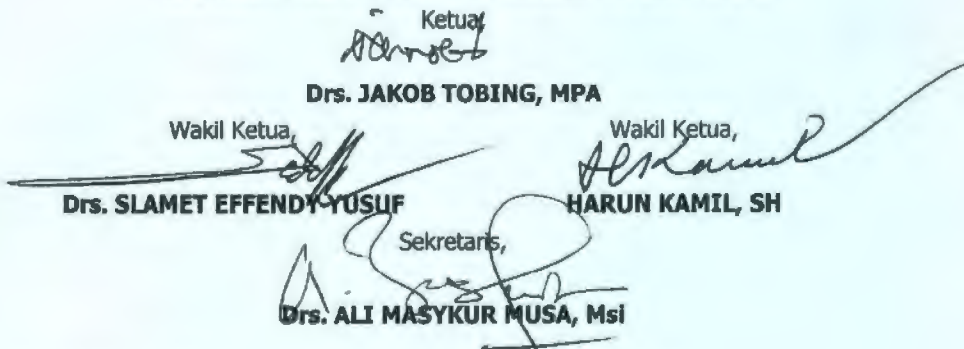 Ketua,
Drs. JAKOB TOBING, MPA
Wakil Ketua,
Wakil Ketua,
Drs. SLAMET EFFENDY YUSUF
HARUN KAMIL, SH
Sekretaris,
Drs. ALI MASYKUR MUSA, Msi